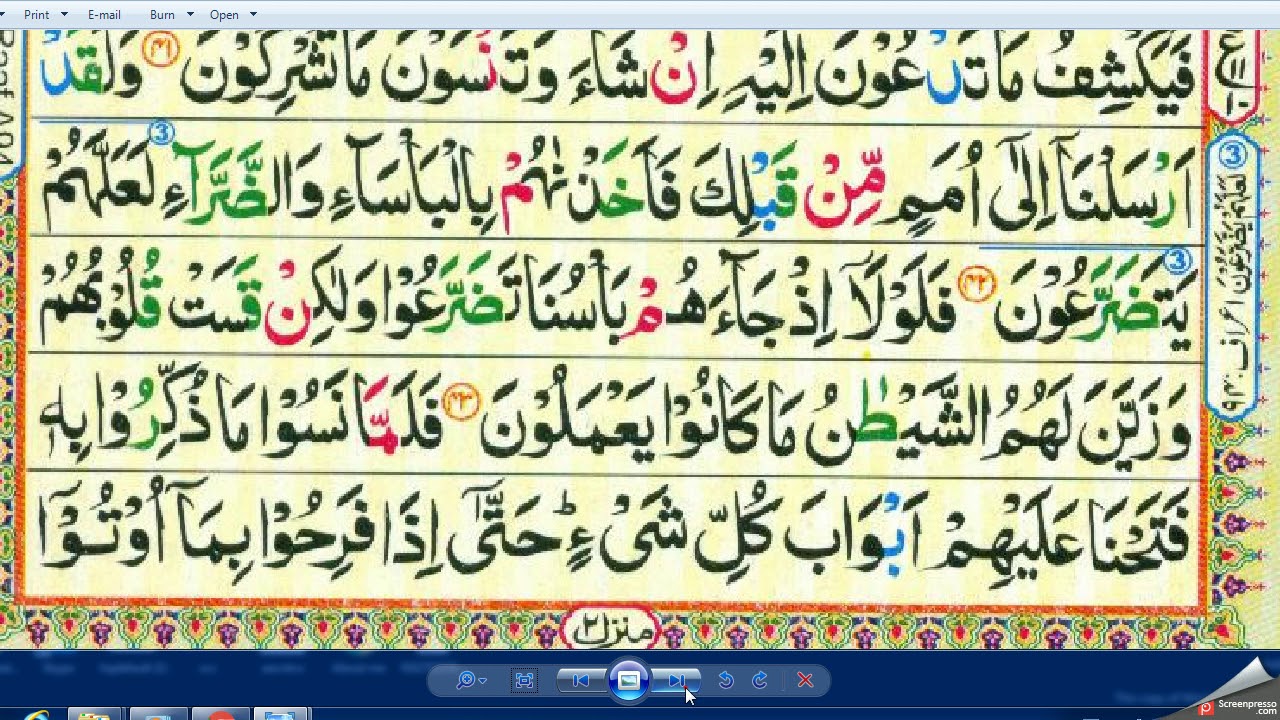 Print E-mail Burn Open
فَيَكْشِفُ مَا تَدْعُوْنَ اِلَيْهِ اِنْ شَآءَ وَتَنْسَوْنَ مَا تُشْرِكُوْنَ ﴿۴۱﴾ وَلَقَدْ
اَرْسَلْنَاۤ اِلٰۤى اُمَمٍ مِّنْ قَبْلِكَ فَاَخَذْنٰهُمْ بِالْبَاْسَآءِ وَالضَّرَّآءِ لَعَلَّهُمْ
يَتَضَرَّعُوْنَ ﴿۴۲﴾ فَلَوْلَاۤ اِذْ جَآءَهُمْ بَاْسُنَا تَضَرَّعُوْا وَلٰكِنْ قَسَتْ قُلُوْبُهُمْ
وَزَيَّنَ لَهُمُ الشَّيْطٰنُ مَا كَانُوْا يَعْمَلُوْنَ ﴿۴۳﴾ فَلَمَّا نَسُوْا مَا ذُكِّرُوْا بِهٖ
فَتَحْنَا عَلَيْهِمْ اَبْوَابَ كُلِّ شَیْءٍ ؕ حَتّٰۤى اِذَا فَرِحُوْا بِمَاۤ اُوْتُوْۤا
منزل ۲
3
3
3
لعلهم يضرعون اعراف ۹۴
Screenpresso
.com